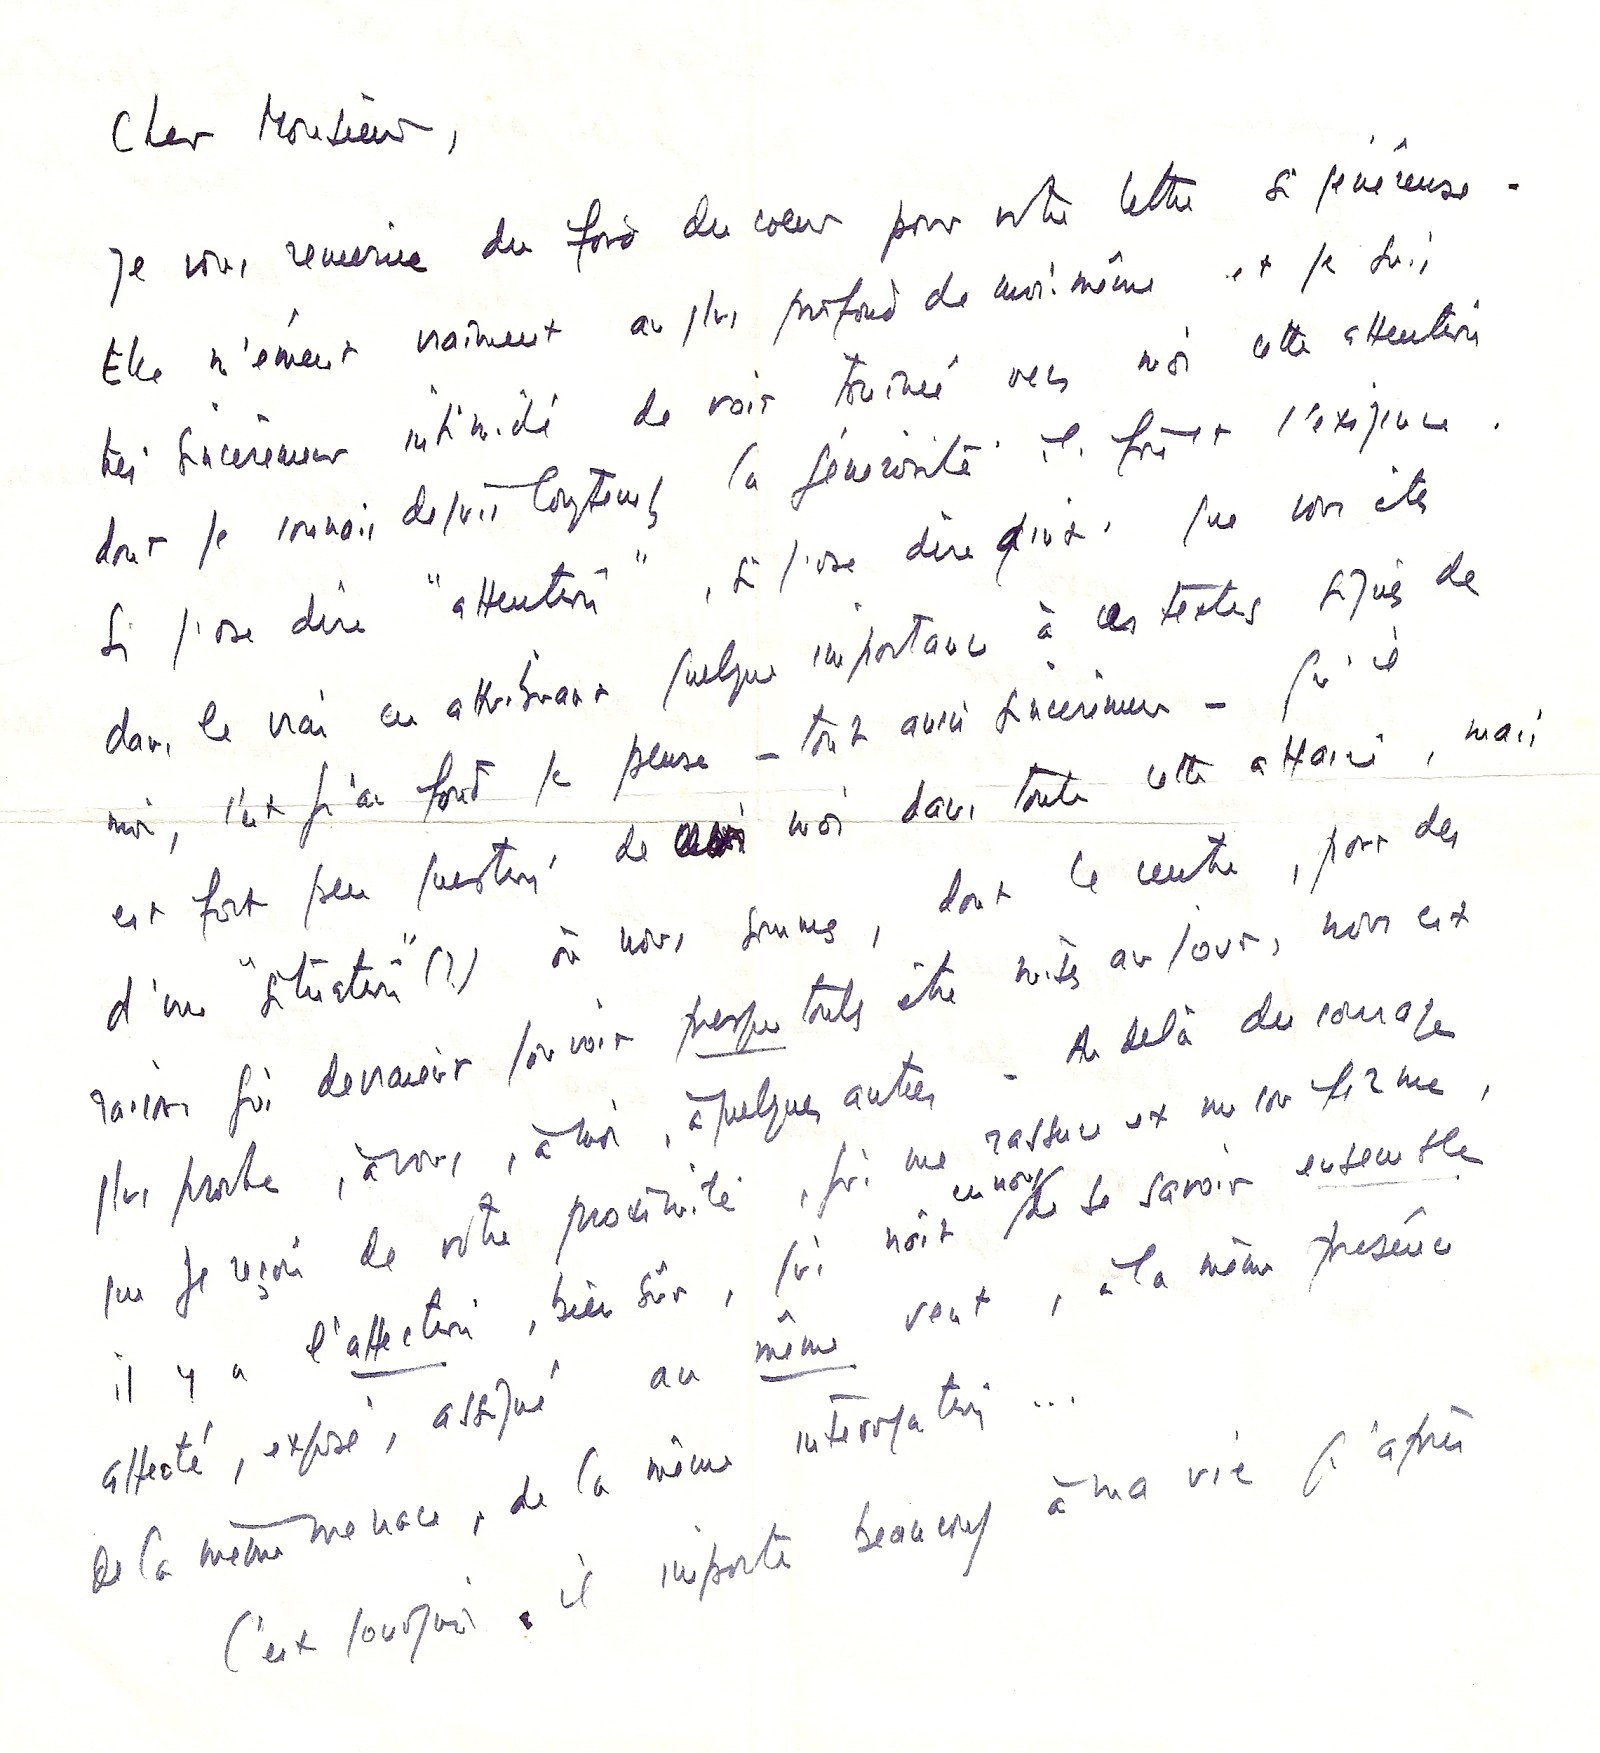 Cher Monsieur,
Je vous remercie du fond du coeur pour votre lettre si généreuse.
Elle m'émeut vraiment au plus profond de moi-même et je suis
très sincèrement intimidé de voir tournée vers moi cette attention
dont je connais depuis longtemps la générosité et l'exigence.
Si j'ose dire "attention", si j'ose dire aussi que vous êtes
dans le vrai en attribuant quelque importance à ces textes signés de
moi, c'est qu'au fond je pense - tout aussi sincèrement - qu'il
est fort peu question de moi dans toute cette affaire, mais
d'une "situation" (?) où nous sommes, dont le centre, pour des
raisons qui devraient pouvoir presque toutes être mises au jour, nous est
plus proche, à vous, à moi, à quelques autres. Au delà du courage
que je reçois de votre proximité, qui me rassure et me confirme,
il y a l'affection, bien sûr, qui naît en nous de se savoir ensemble
affecté, exposé, assigné au même vent, à la même présence
de la même menace, de la même interrogation ...
C'est pourquoi il importe beaucoup à ma vie qu'après